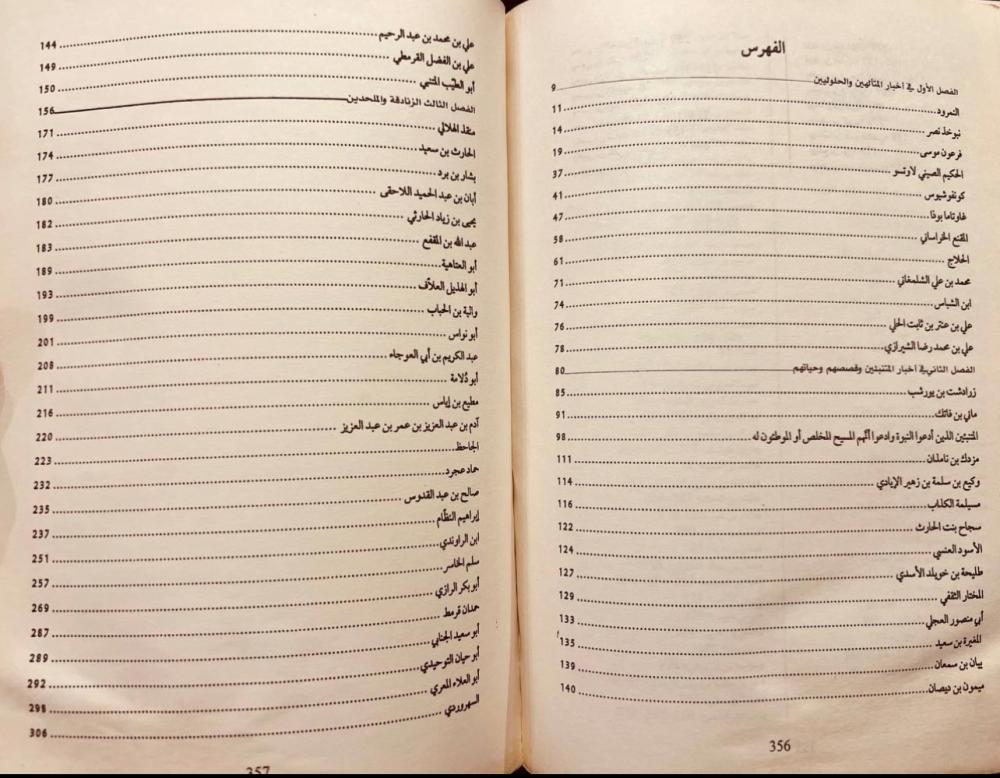 الفهرس
الفصل الأول في أخبار المتألهين والحلوليين 9
النمرود 11
نبوخذ نصر 14
فرعون موسى 19
الحكيم الصيني لاوتسو 37
كونفوشيوس 41
غاوتاما بوذا 47
المقنع الخراساني 58
الحلاج 61
محمد بن علي الشلمغاني 71
ابن الشباس 74
علي بن عنتر بن ثابت الحلي 76
علي بن محمد رضا الشيرازي 78
الفصل الثاني في أخبار المتنبئين وقصصهم وحياتهم 80
زرادشت بن يورشب 85
ماني بن فاتك 91
المتنبئين الذين أدعوا النبوة وادعوا أنّهم المسيح المخلص أو الموطئون له 98
مزدك بن نامذان 111
وكيع بن سلمة بن زهير الإيادي 114
مسيلمة الكذاب 116
سجاح بنت الحارث 122
الأسود العنسي 124
طليحة بن خويلد الأسدي 127
المختار الثقفي 129
أبي منصور العجلي 133
المغيرة بن سعيد 135
بيان بن سمعان 139
ميمون بن ديصان 140
356
علي بن محمد بن عبد الرحيم 144
علي بن الفضل القرمطي 149
أبو الطيّب المتنبي 150
الفصل الثالث الزنادقة والملحدين 156
منقذ الهلالي 171
الحارث بن سعيد 174
بشار بن برد 177
أبان بن عبد الحميد اللاحقي 180
يحيى بن زياد الحارثي 182
عبد الله بن المقفع 183
أبو العتاهية 189
أبو الهذيل العلاّف 193
والبة بن الحباب 199
أبو نواس 201
عبد الكريم بن أبي العوجاء 208
أبو دُلامة 211
مطيع بن إياس 216
آدم بن عبد العزيز بن عمر بن عبد العزيز 220
الجاحظ 223
حماد عجرد 232
صالح بن عبد القدوس 235
إبراهيم النظّام 237
ابن الراوندي 251
سلم الخاسر 257
أبو بكر الرازي 269
حمدان قرمط 287
أبو سعيد الجنابي 289
أبو حيان التوحيدي 292
أبو العلاء المعري 298
السهروردي 306
357